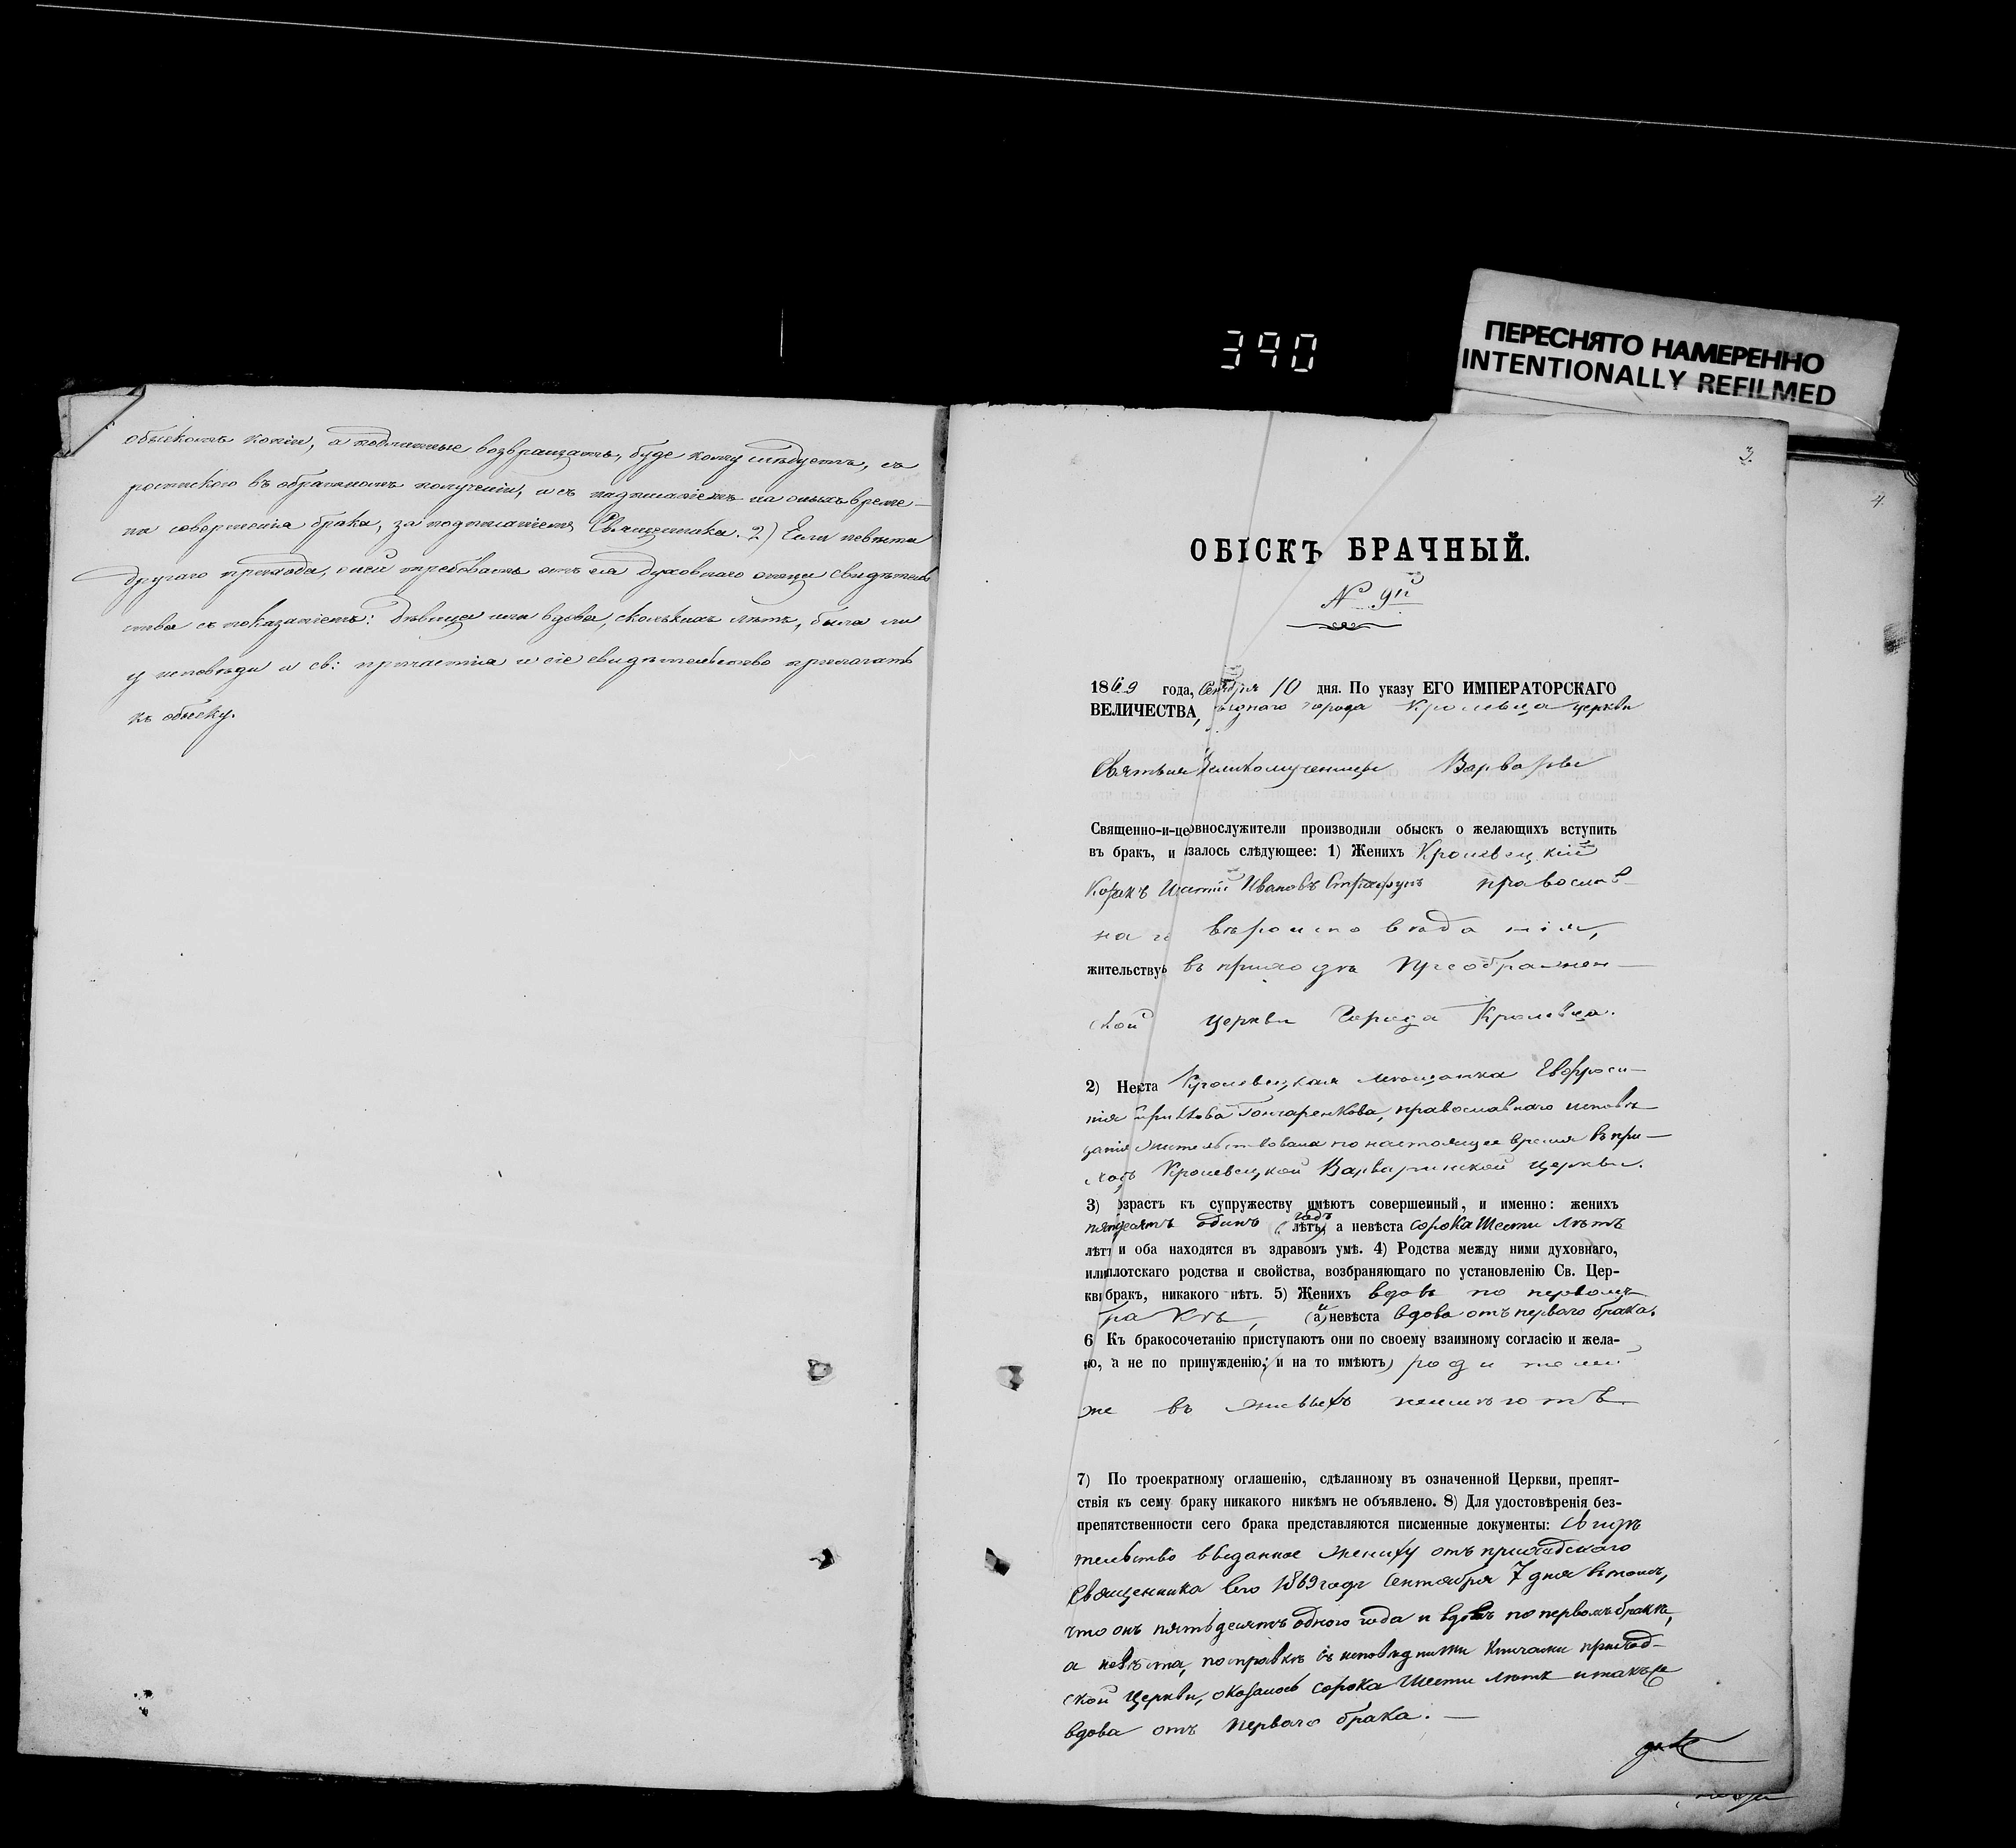 390
ПЕРЕСНЯТО НАМЕРЕННО
INTENTIONALLY REFILMED
обыскомъ копіи, а подлинные возвращать, буде кому слѣдуетъ, съ
роспискою въ обратномъ полученіи, и съ надписаніемъ на оныхъ време-
ни совершенія брака, за подписаніемъ Священника. 2) Если невѣста
другаго прихода, о ней требовать отъ ея духовнаго отца свидѣтель
ства съ показаніемъ: дѣвица или вдова, сколькихъ лѣтъ, была ли
у исповѣди и св: причастія и сіе свидѣтельство прилагать
къ обыску.
3.
4.
ОБІСКЪ БРАЧНЫЙ.
№ 9й
1869 года, Сентября 10 дня. По указу ЕГО ИМПЕРАТОРСКАГО
ВЕЛИЧЕСТВА, города Кролевца церкви
Святыя Великомученицы Варвары
Священно-и-це овнослужители производили обыскъ о желающихъ вступить
въ бракъ, и азалось слѣдующее: 1) Женихъ Кролевецкій
Козакъ Ивановъ православ-
на вѣроисповѣданія,
жительствуе въ приходѣ Преображен-
ской церкви города Кролевца.
2) Не ста Кролевецкая мѣщанка Евфроси-
нія Гончаренкова, православнаго исповѣ-
данія жительствовала по настоящее время въ при-
ходѣ Кролевецкой Варваринской церкви.
3) озрастъ къ супружеству имѣютъ совершенный, и именно: женихъ
пятдесятъ одинъ годъ (лѣтъ), а невѣста сорока шести лѣтъ
лѣтъ и оба находятся въ здравомъ умѣ. 4) Родства между ними духовнаго,
или плотскаго родства и свойства, возбраняющаго по установленію Св. Цер-
кви бракъ, никакого нѣтъ. 5) Женихъ вдовъ по первомъ
бракѣ, (а) и невѣста вдова отъ перваго брака.
6 Къ бракосочетанію приступаютъ они по своему взаимному согласію и жела-
ю, а не по принужденію; (и на то имѣютъ) родителей
же въ живыхъ неимѣютъ
7) По троекратному оглашенію, сдѣланному въ означенной Церкви, препят-
ствія къ сему браку никакого никѣмъ не объявлено. 8) Для удостовѣренія без-
препятственности сего брака представляются писменные документы: Свидѣ
тельство выданное жениху отъ приходскаго
Священника сего 1869 года Сентября 7 дня въ томъ,
что онъ пятьдесятъ одного года и вдовъ по первомъ бракѣ,
а невѣста, по справкѣ съ исповѣдными книгами приход-
ской церкви, оказалось сорока шести лѣтъ и также
вдова отъ перваго брака. —